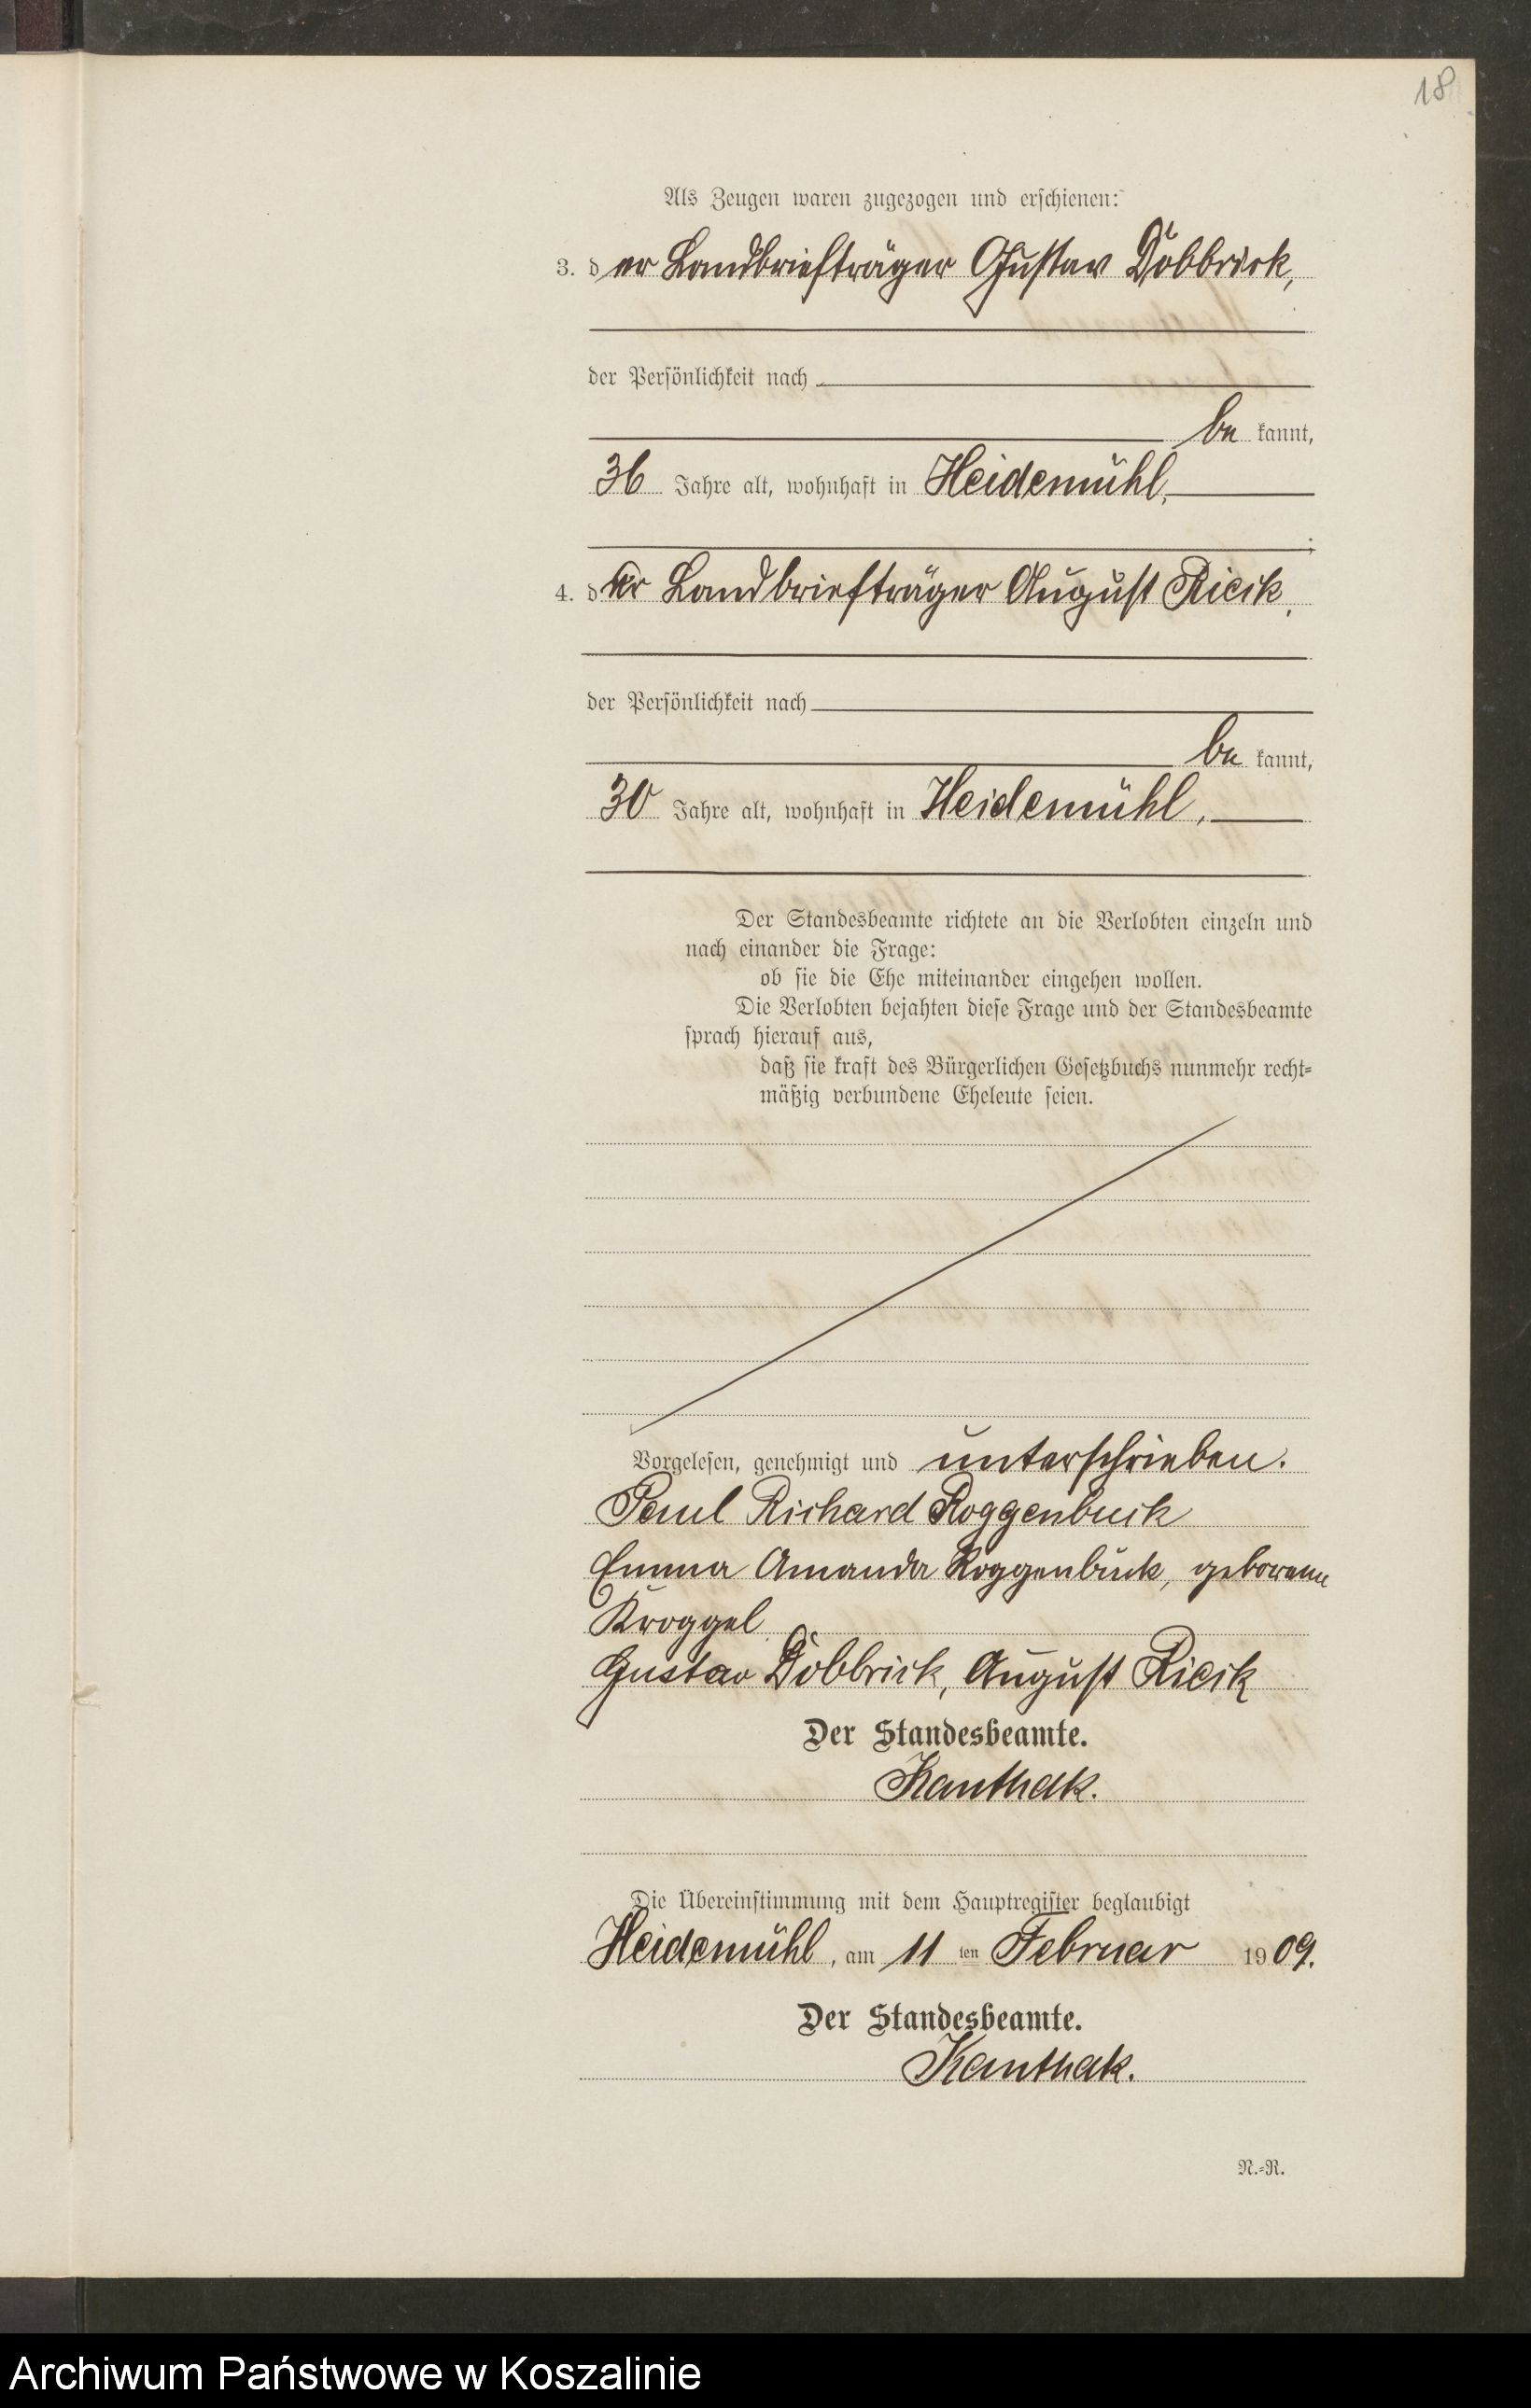 18
Als Zeugen waren zugezogen und erschienen:
3. der Landbriefträger Gustav Dobbrick,
der Persönlichkeit nach
be kannt,
36 Jahre alt, wohnhaft in Heidemühl,
;
4. der Landbriefträger August Ricik,
der Persönlichkeit nach
be kannt,
30 Jahre alt, wohnhaft in Heidemühl,
Der Standesbeamte richtete an die Verlobten einzeln und
nach einander die Frage:
ob sie die Ehe miteinander eingehen wollen.
Die Verlobten bejahten diese Frage und der Standesbeamte
sprach hierauf aus,
daß sie kraft des Bürgerlichen Gesetzbuchs nunmehr recht=
mäßig verbundene Eheleute seien.
Vorgelesen, genehmigt und unterschrieben.
Paul Richard Roggenbuck
Emma Amanda Roggenbuck, geborene
Kroggel
Gustav Dobbrick, August Ricik
Der Standesbeamte.
Kanthak.
Die Übereinstimmung mit dem Hauptregister beglaubigt
Heidemühl, am 11 ten Februar 1909.
Der Standesbeamte.
Kanthak.
N.=R.
Archiwum Państwowe w Koszalinie